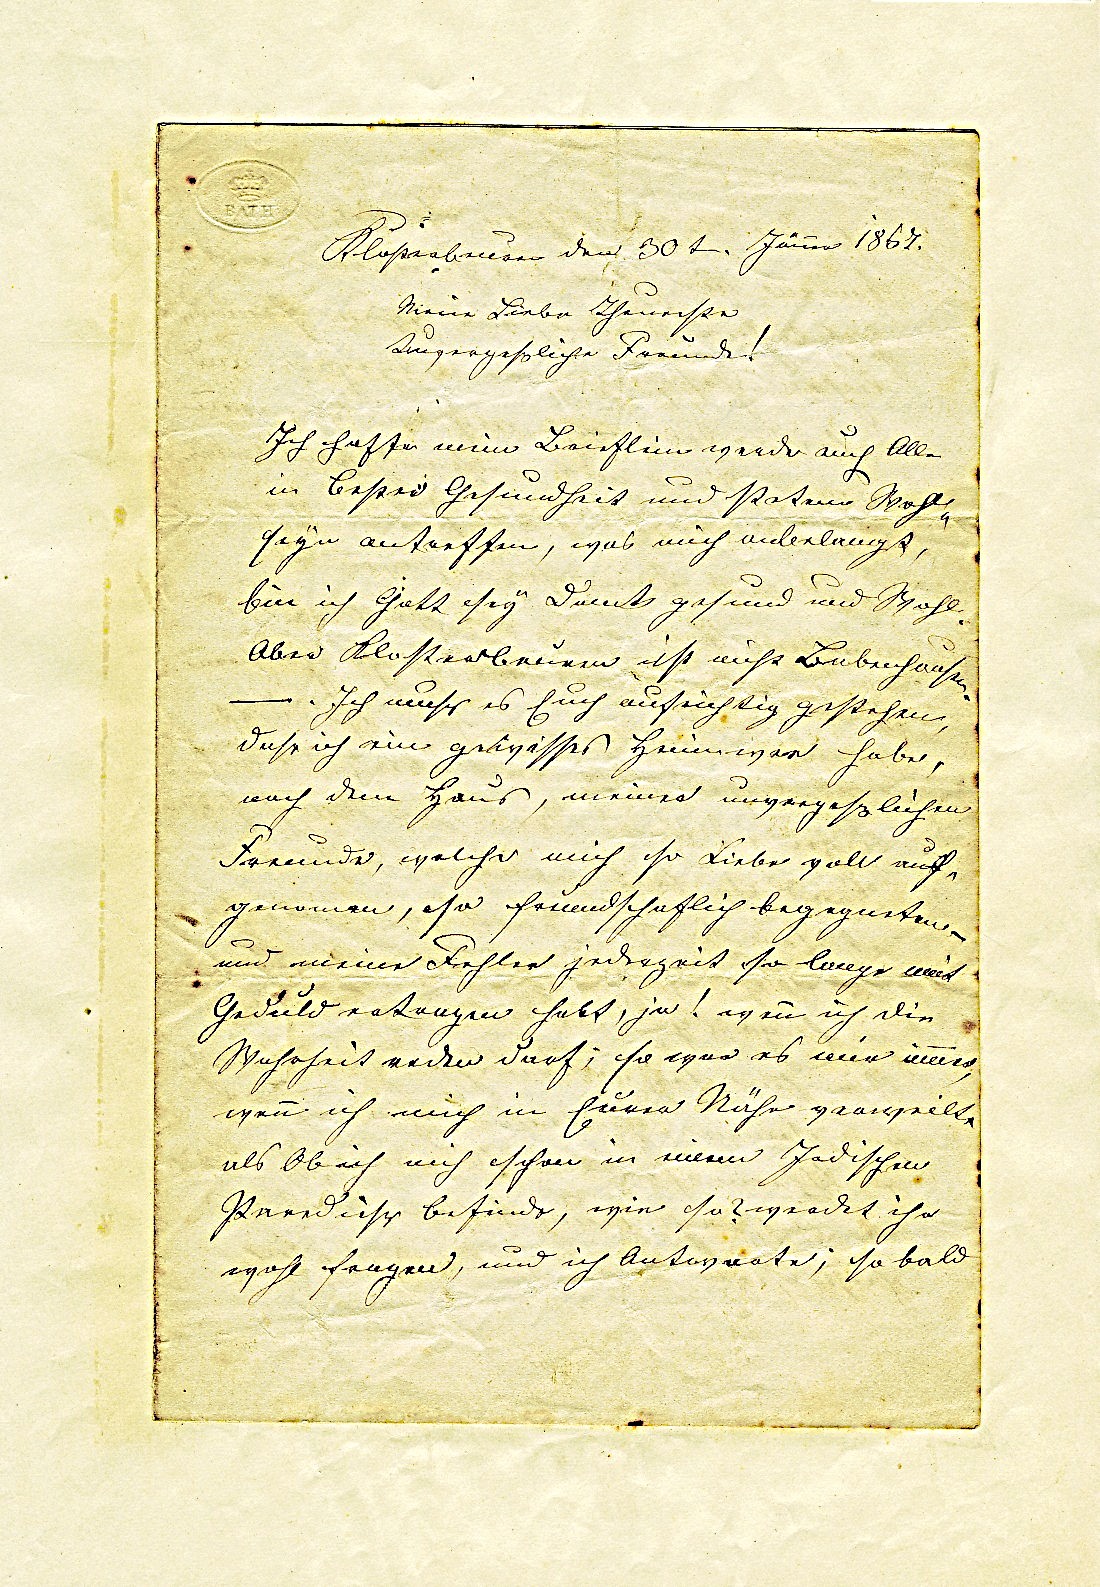 BATH
Klosterbeuren den 30t. Jäner 1867.
Meine Liebe Theuerste
Unvergeßliche Freunde!
Ich hoffe mein Brieflein werde euch Alle
in bester Gesundheit und stetem Wohl„
seyn antreffen, was mich anbelangt,
bin ich Gott sey Dank gesund und Wohl.
Aber Klosterbeuren ist nicht Bubenhausen
—. Ich muß es Euch aufrichtig gestehen,
daß ich ein gewisses Heimweh habe,
nach dem Haus, meiner unvergeßlichen
Freunde, welche mich so Liebe voll auf„
genomen, so freundschaftlich begegneten
und meine Fehler jederzeit so lange mit
Geduld ertragen habt, ja! wen̄ ich die
Wahrheit reden darf; so war es mir im̄er,
wen̄ ich mich in Eurer Nähe verweilte
als Ob ich mich schon in einem Irdischen
Paredieß befinde, wie so? werdet ihr
wohl fragen, und ich Antworte; so bald